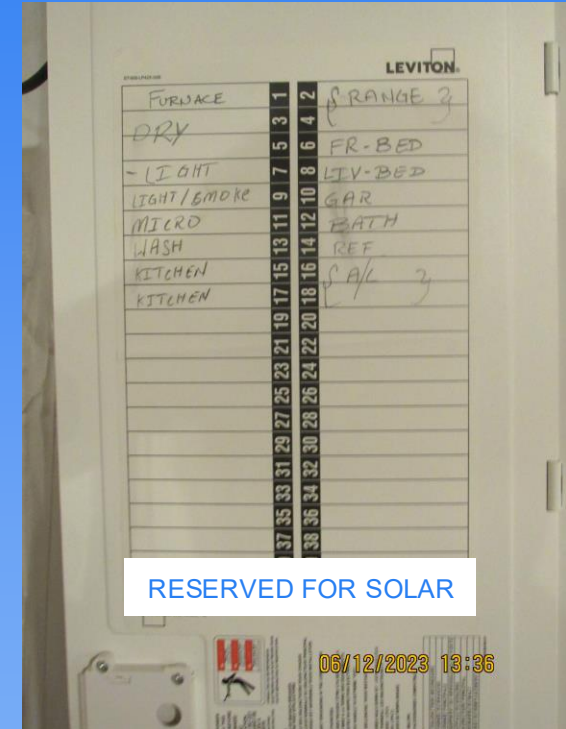 LEVITON
FURNACE 1 2 { RANGE }
DRY 3 4
5 6 FR-BED
-LIGHT 7 8 LIV-BED
LIGHT/SMOKE 9 10 GAR
MICRO 11 12 BATH
WASH 13 14 REF
KITCHEN 15 16 { A/C }
KITCHEN 17 18
19 20
21 22
23 24
25 26
27 28
29 30
31 32
33 34
35 36
37 38
RESERVED FOR SOLAR
06/12/2023 13:36